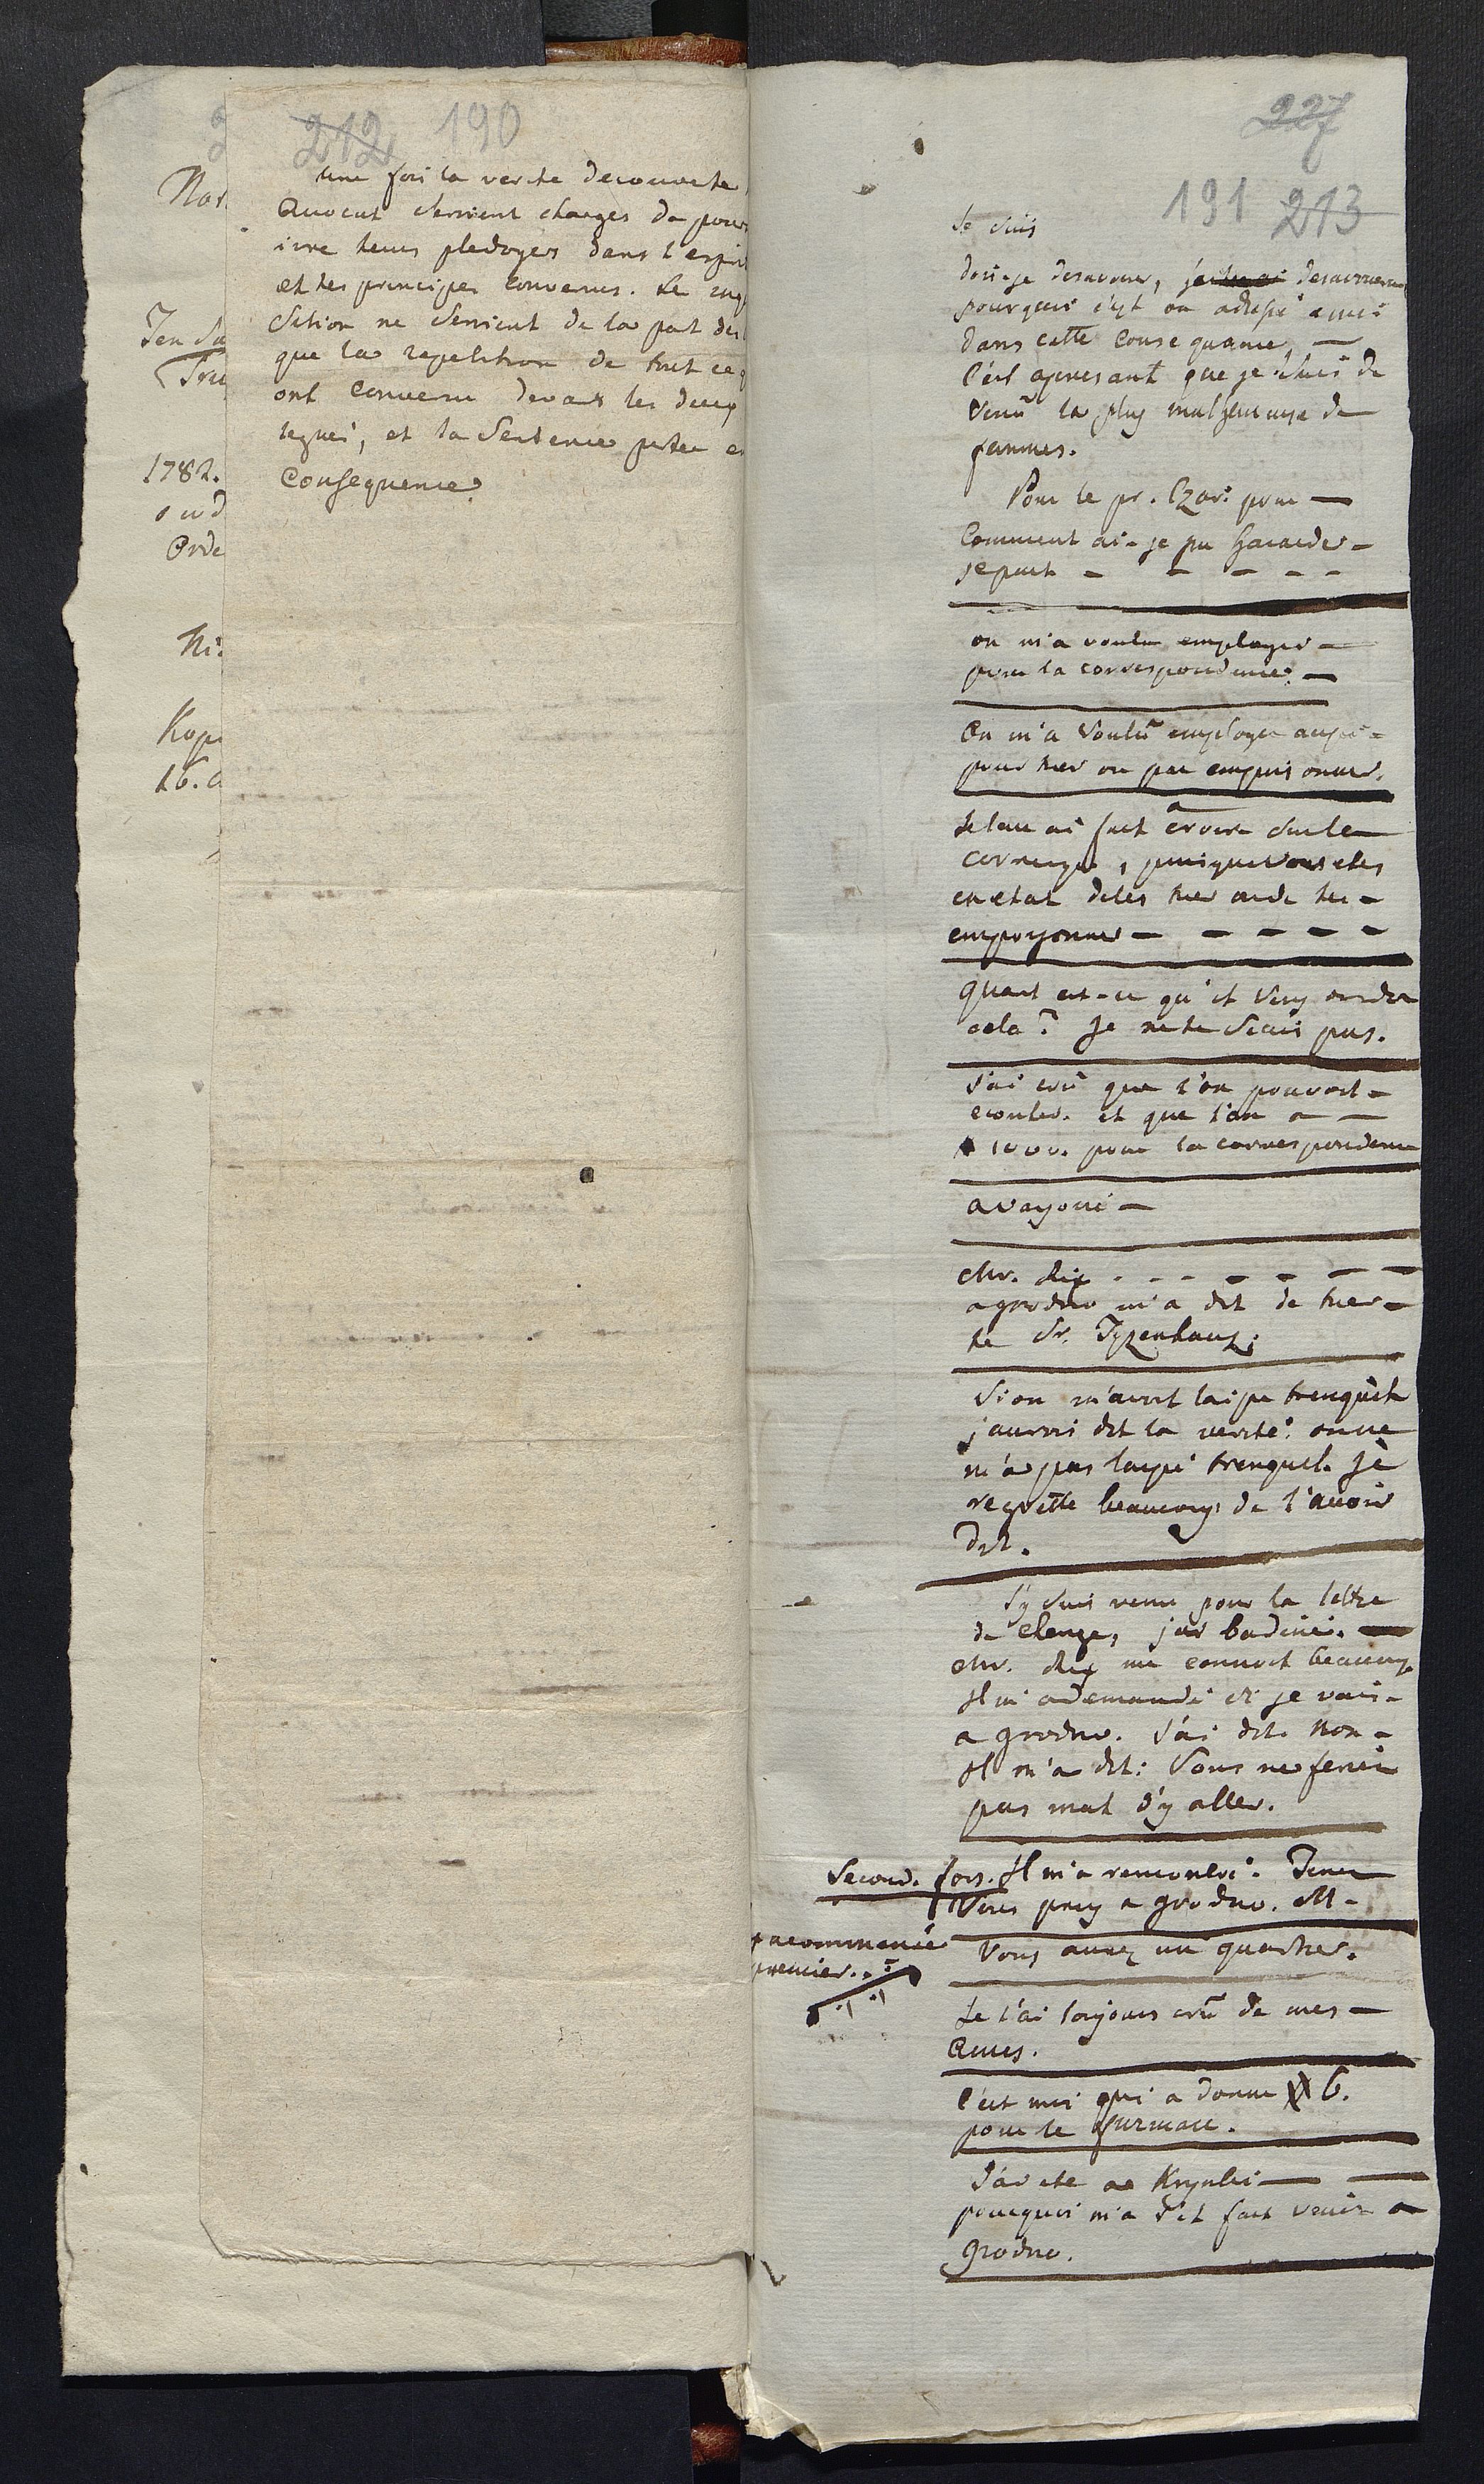 2
Nar
Ten
1782.
sud
Orde
Ni.
Kopi
16.
212 190
Une fois la verite decouverte
Avocat seroient charges de pour
ivre leurs pledoyers dans l'espri
et les principes convenus. Le
sition ne seroient de la part des
que la repetition de tout ce q
ont convenu devant les deux
legués, et la Sentence portée e
Consequence.
227
191 213
Je suis
dois-je desavouer, desavouerai
pourquoi s'est on adressé a moi
dans cette consequance, —
C'est apresant que je suis de
venu la plus malheureuse de
fammes.
Pour le pr. Czar: pour —
Comment ai-je pu hazarder -
repart - - - - -
on m'a voulu employer -
pour la correspondence. —
On m'a voulu employer aussi -
pour tuer ou par empoisonner.
Je leur ai fait croire sur le
, puisque vous etes
en etat de les tuer ou de les -
empoysonner - - - - -
Quant est-ce qu'il
cela? Je ne le scais pas.
J'ai crû que l'on pouvoit -
ecouter. et que l'on a —
# 1000. pour la correspondence
avayoué —
chr. dix - - - - - -
a grodno m'a dit de tuer -
le Sr. Tyzenhauz.
Si on m'avoit laisse trenquile
j'aurois dit la verité. on ne
m'a pas laissé trenquil. Je
regrette beaucoup de l'avoir
dit.
J'y suis venu pour la lettre
de change, j'ai badiné.
chr. dix me connoit beaucoup
Il m'a demandé si je vais -
a grodno. J'ai dit. Non -
Il m'a dit: Vous ne feriez
pas mal d'y aller.
Second. fois. Il m'a rencontré. Tenez
Vous a grodno. Al -
recommencé
premier..
Vous aurez un quartier.
Je l'ai toujours crû de mes —
Amis.
C'est moi qui a donné # 6.
pour le furman.
J'ai eté a Krynki — —
pourquoi m'a t'il fait venir a
Grodno.